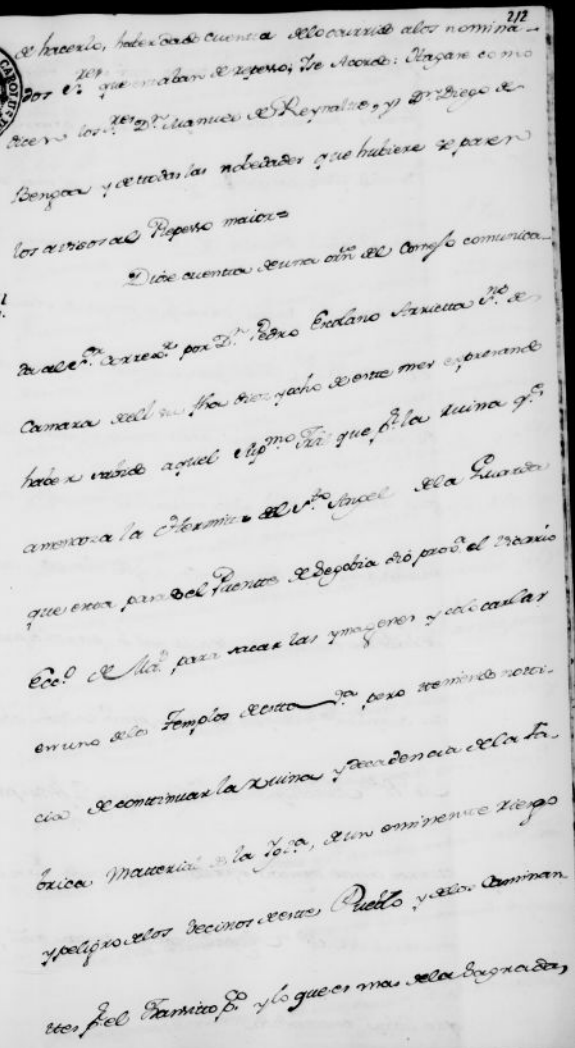 212
de hacerlo, haber dado cuenta de lo ocurrido a los nomina-
dos Sres. que estaban de repeso; Se Acordo: Hagase como
dicen los Sres. Dn. Manuel de Reynalte, y Dn. Diego de
Bengoa y de todas las nobedades que hubiere se pasen
los avisos al Repesso maior=
Diose cuenta de una orn. del Consejo comunica-
da al Sr. Correxr. por Dn. Pedro Escolano Arrietta Srio. de
Camara de el su fha diez y ocho de este mes expresando
haber sabido aquel Supmo. Tral que pr. la ruina qe.
amenaza la Hermita del Sto. Angel de la Guarda
que esta pasado el Puente de Segobia dió prova. el Vicario
Ecco. de Md. para sacar las ymagenes y colocarlas
en uno de los Templos de esta Va. pero teniendo noti-
cia de continuar la ruina y decadencia de la Fa-
brica material de la Iglia., de un eminente riesgo
y peligro de los becinos de este Pueblo y de los Caminan-
tes pr. el Transitto po. y lo que es mas de la Sagradas